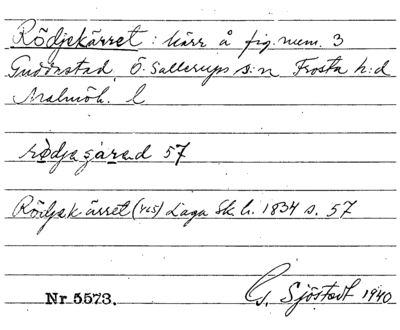 Rödjekärret: kärr å fig. num. 3
Guddastad, Ö. Sallerups s:n Frosta h:d
Malmöh. l
57
Rödjekärret (res) Laga Sk. h. 1834 s. 57
Nr 5573. G. Sjöstedt 1940